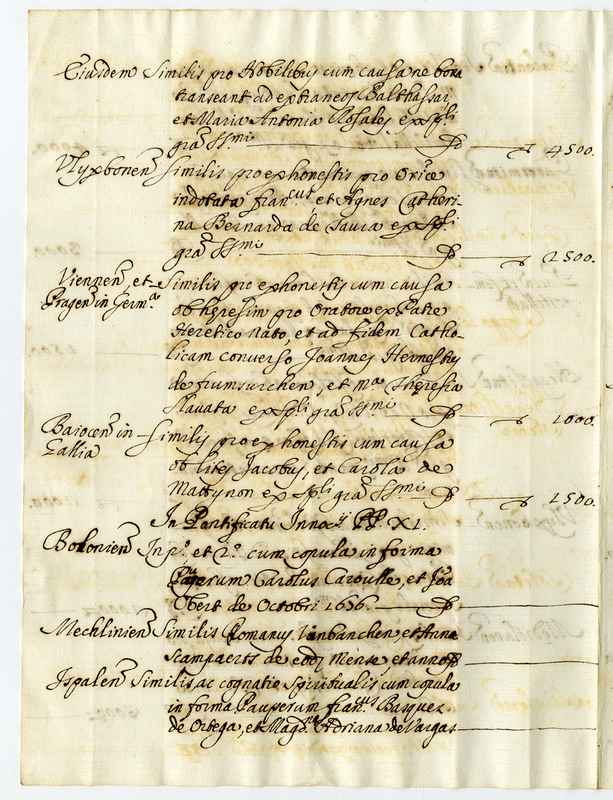 Eiusdem Similis pro Nobilibus cum causa ne bona
transeant ad extraneos Balthassar
et Maria Antonia Rosales ex spli
gra ssmi 4500.
Vlyxbonen Similis pro exhonestis pro Orice
indotata Francus et Agnes Catheri-
na Bernarda de Saura ex spli
gra ssmi 2500.
Viennen et Similis pro exhonestis cum causa
Pragen in Germa ob heresim pro Oratore ex Patre
Heretico nato, et ad fidem Catho-
licam converso Joannes Hernestus
de et Ma Theresia
Slavata ex spli gra ssmi 1000.
Baiocen in Similis pro exhonestis cum causa
Gallia ob lites Jacobus, et Carola de
Mattynon ex spli gra ssmi 1500.
In Pontificatu Innocij PP XI.
Bolonien In po. et 2o. cum copula in forma
Pauperum Carolus Caroulle, et Joa
Obert de Octobri 1676.
Mechlinien Similis Romanus Vanbanchen, et Anna
Scampaerts de eodz Mense, et anno
Ispalen Similis ac cognatio Spiritualis cum copula
in forma Pauperum Francus Basquez
de Ortega, et Magdna Adriana de Vargas